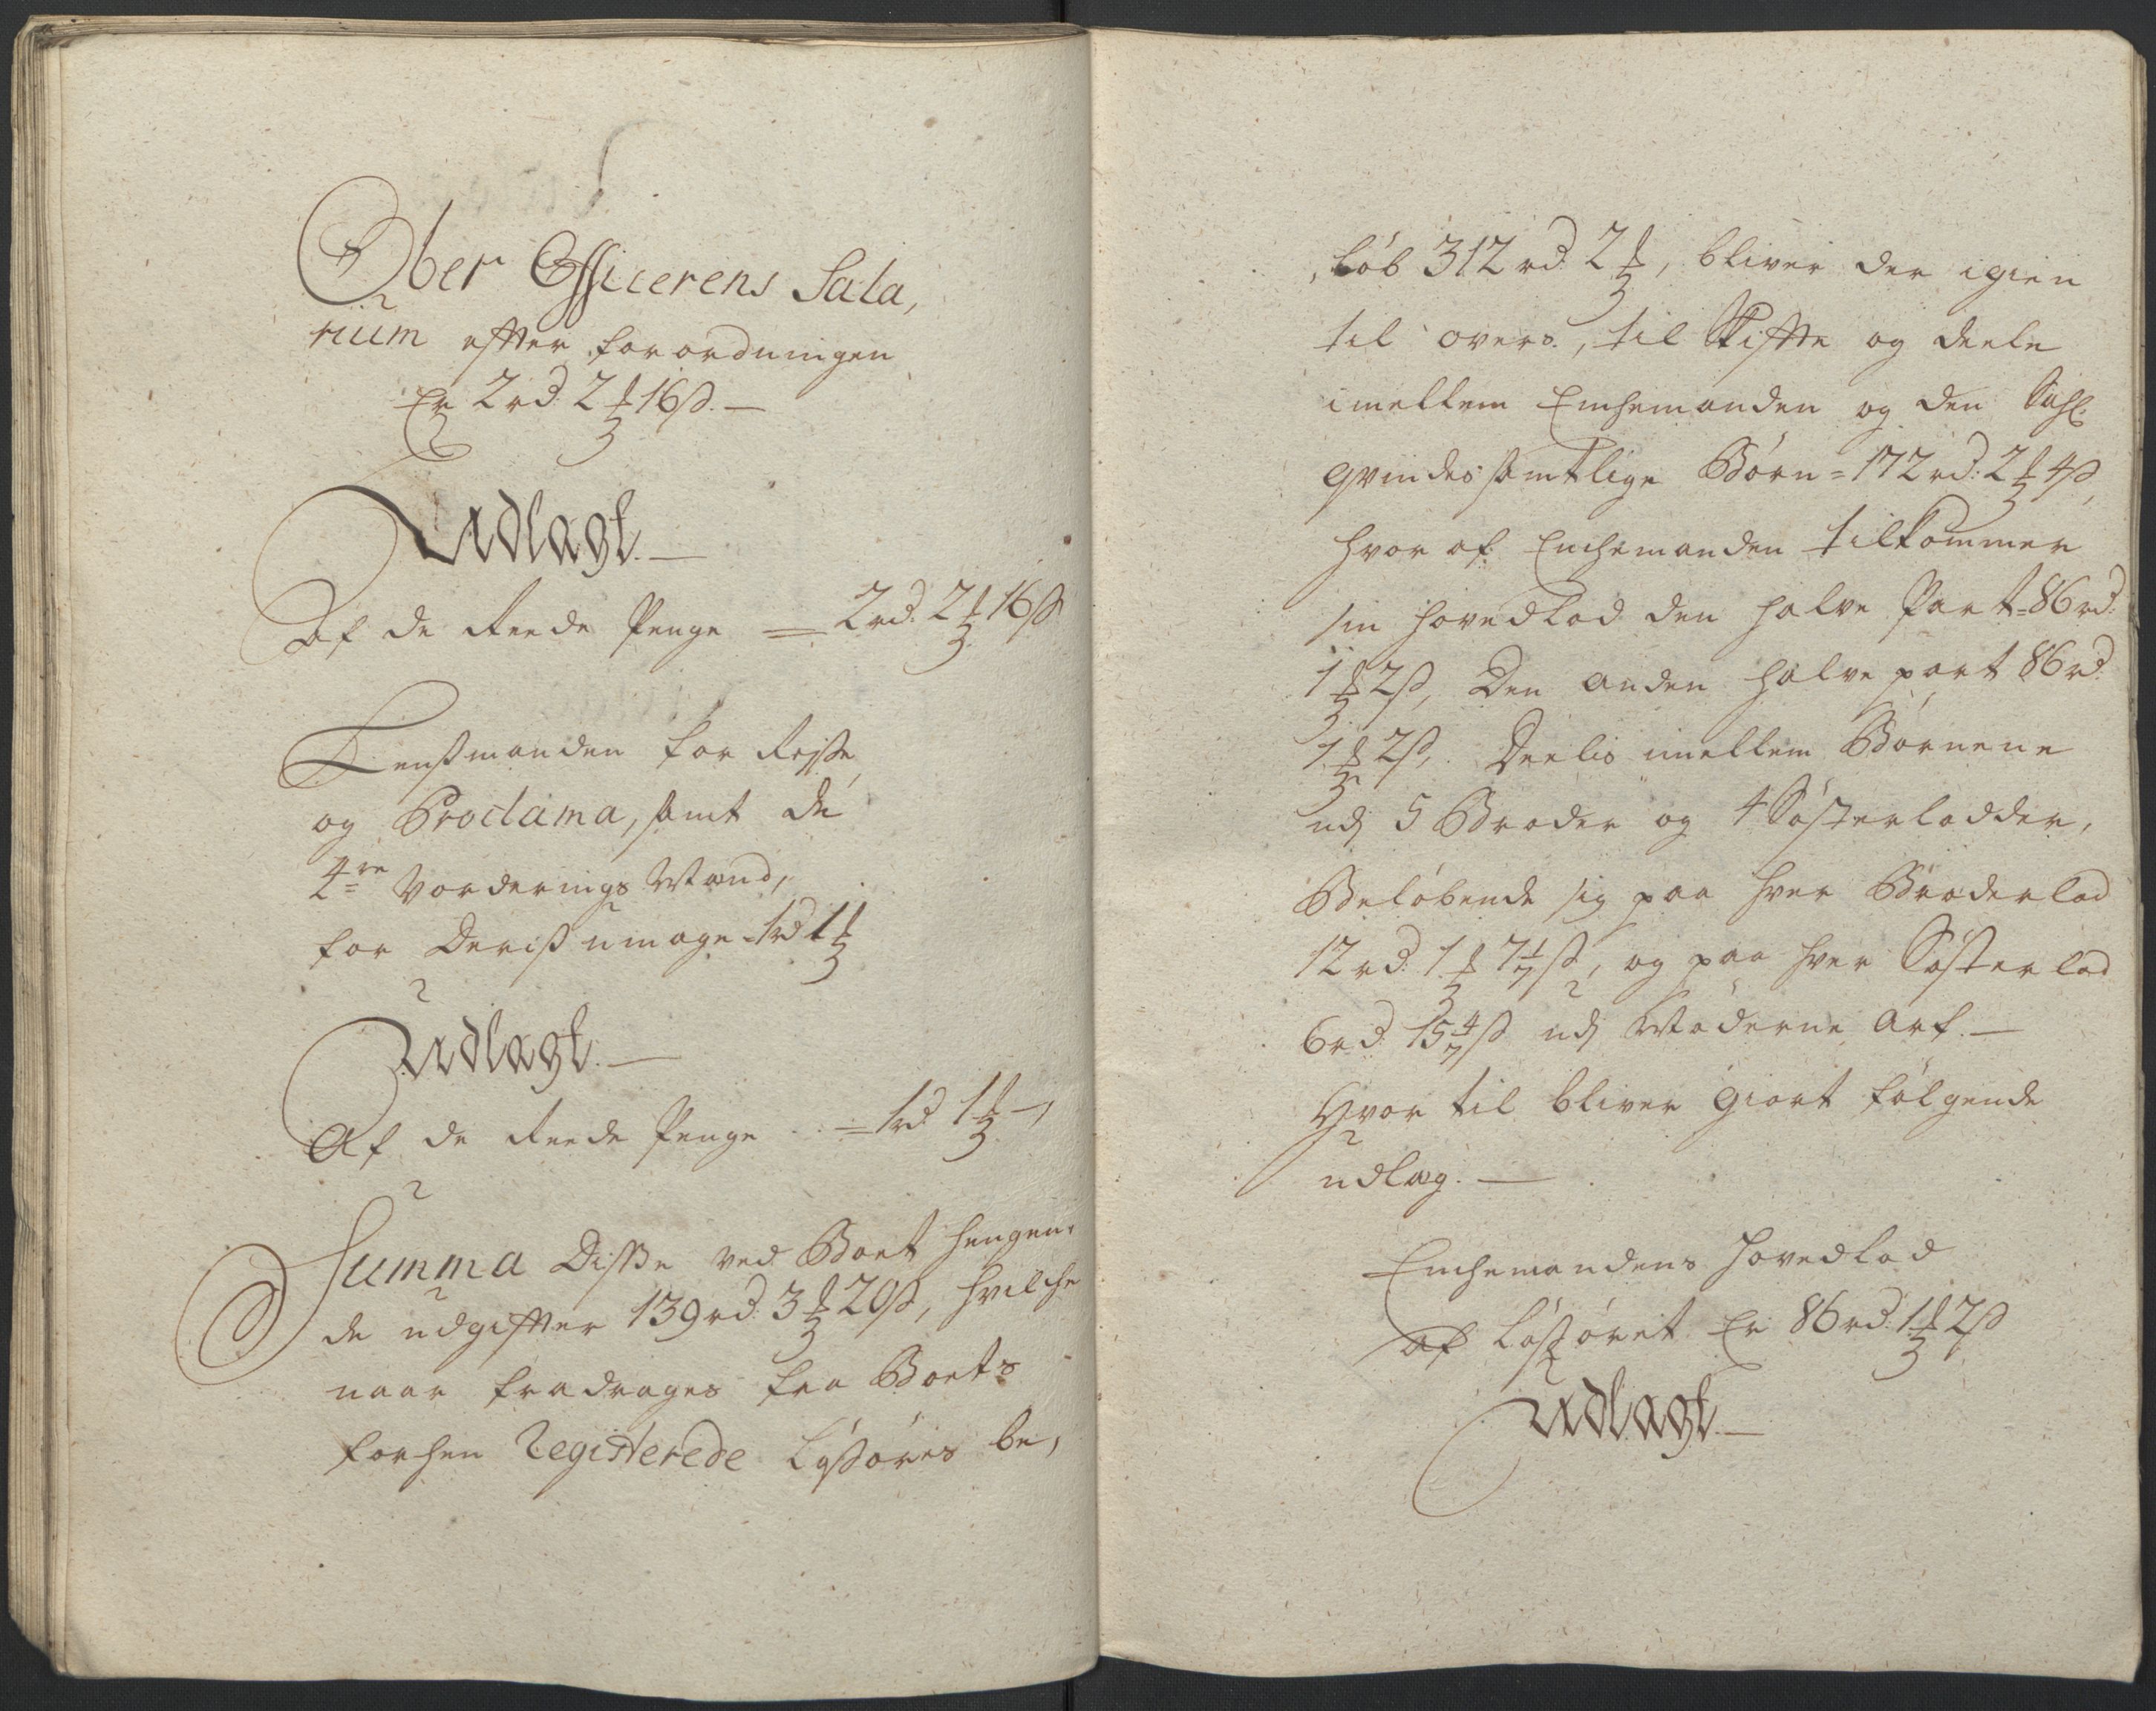 Ober Officerens Sala,
rium effter forordningen
Er 2 rd. 2 ₰ 16 ß. —
Udlagt. —
Af de Reede Penge = 2 rd. 2 ₰ 16 ß
Lenßmanden for Reyße,
og Proclama, samt de
4re Vorderings Mænd,
for deriß umage = 1 rd 1 ₰
Udlagt. —
Af de Reede Penge = 1 rd 1 ₰ —,
Summa Disse ved Boet hengen,
de udgiffter 139 rd. 3 ₰ 20 ß, hvilche
naar fradrages fra Boets
forhen Registerede Lößöres be,
,löb 312 rd. 2 ₰, bliver der igien
til overs., til Skiffte og deele
imellem Enchemanden og den Sahl.
qvindes samtlige Börn = 172 rd. 2 ₰ 4 ß,
hvor af Enchemanden tilkommer
sin hovedlod den halve Part = 86 rd.
1 ₰ 2 ß, Den anden halve part 86 rd.
1 ₰ 2 ß, Deelis imellem Börnene
udj 5 Broder og 4 Sösterlodder,
Belöbende sig paa hver Broderlod
12 rd. 1 ₰ 7 1/7 ß, og paa hver Sösterlod
6 rd. 15 4/7 ß udj Möderne Arf. —
Hvor til bliver giort fölgende
udlæg. —
Enchemandens Hovedlod
af Lößöret Er 86 rd. 1 ₰ 2 ß
Udlagt. —